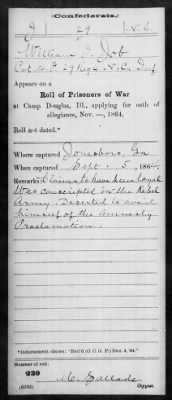 (Confederate.)
J 29 N.C.
William E. Job
Co. F 29 Reg't N.C. Inf
Appears on a
Roll of Prisoners of War
at Camp Douglas, Ill., applying for oath of
allegiance, Nov. —, 1864.
Roll not dated.*
Where captured Jonesboro, Ga
When captured Sept. 5, 1864
Remarks: Claims to have been loyal
Was conscripted in the Rebel
Army. Deserted to avail
himself of the Amnesty
Proclamation.
*Indorsement shows: "Rec'd (O. C. G. P.) Dec. 2, 64."
Number of roll:
230
Copyist.